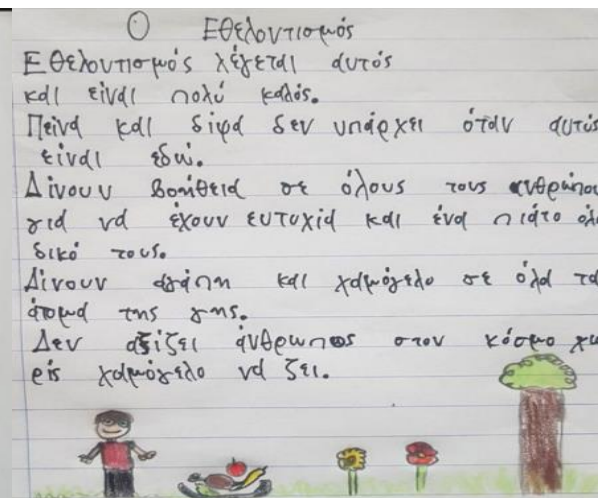 Ο Εθελοντισμός
Εθελοντισμός λέγεται αυτός
και είναι πολύ καλός.
Πείνα και δίψα δεν υπάρχει όταν αυτός
είναι εδώ.
Δίνουν βοήθεια σε όλους τους ανθρώπου
για να έχουν ευτυχία και ένα πιάτο όλο
δικό τους.
Δίνουν αγάπη και χαμόγελο σε όλα τα
άτομα της γης.
Δεν αξίζει άνθρωπος στον κόσμο χω
ρίς χαμόγελο να ζει.